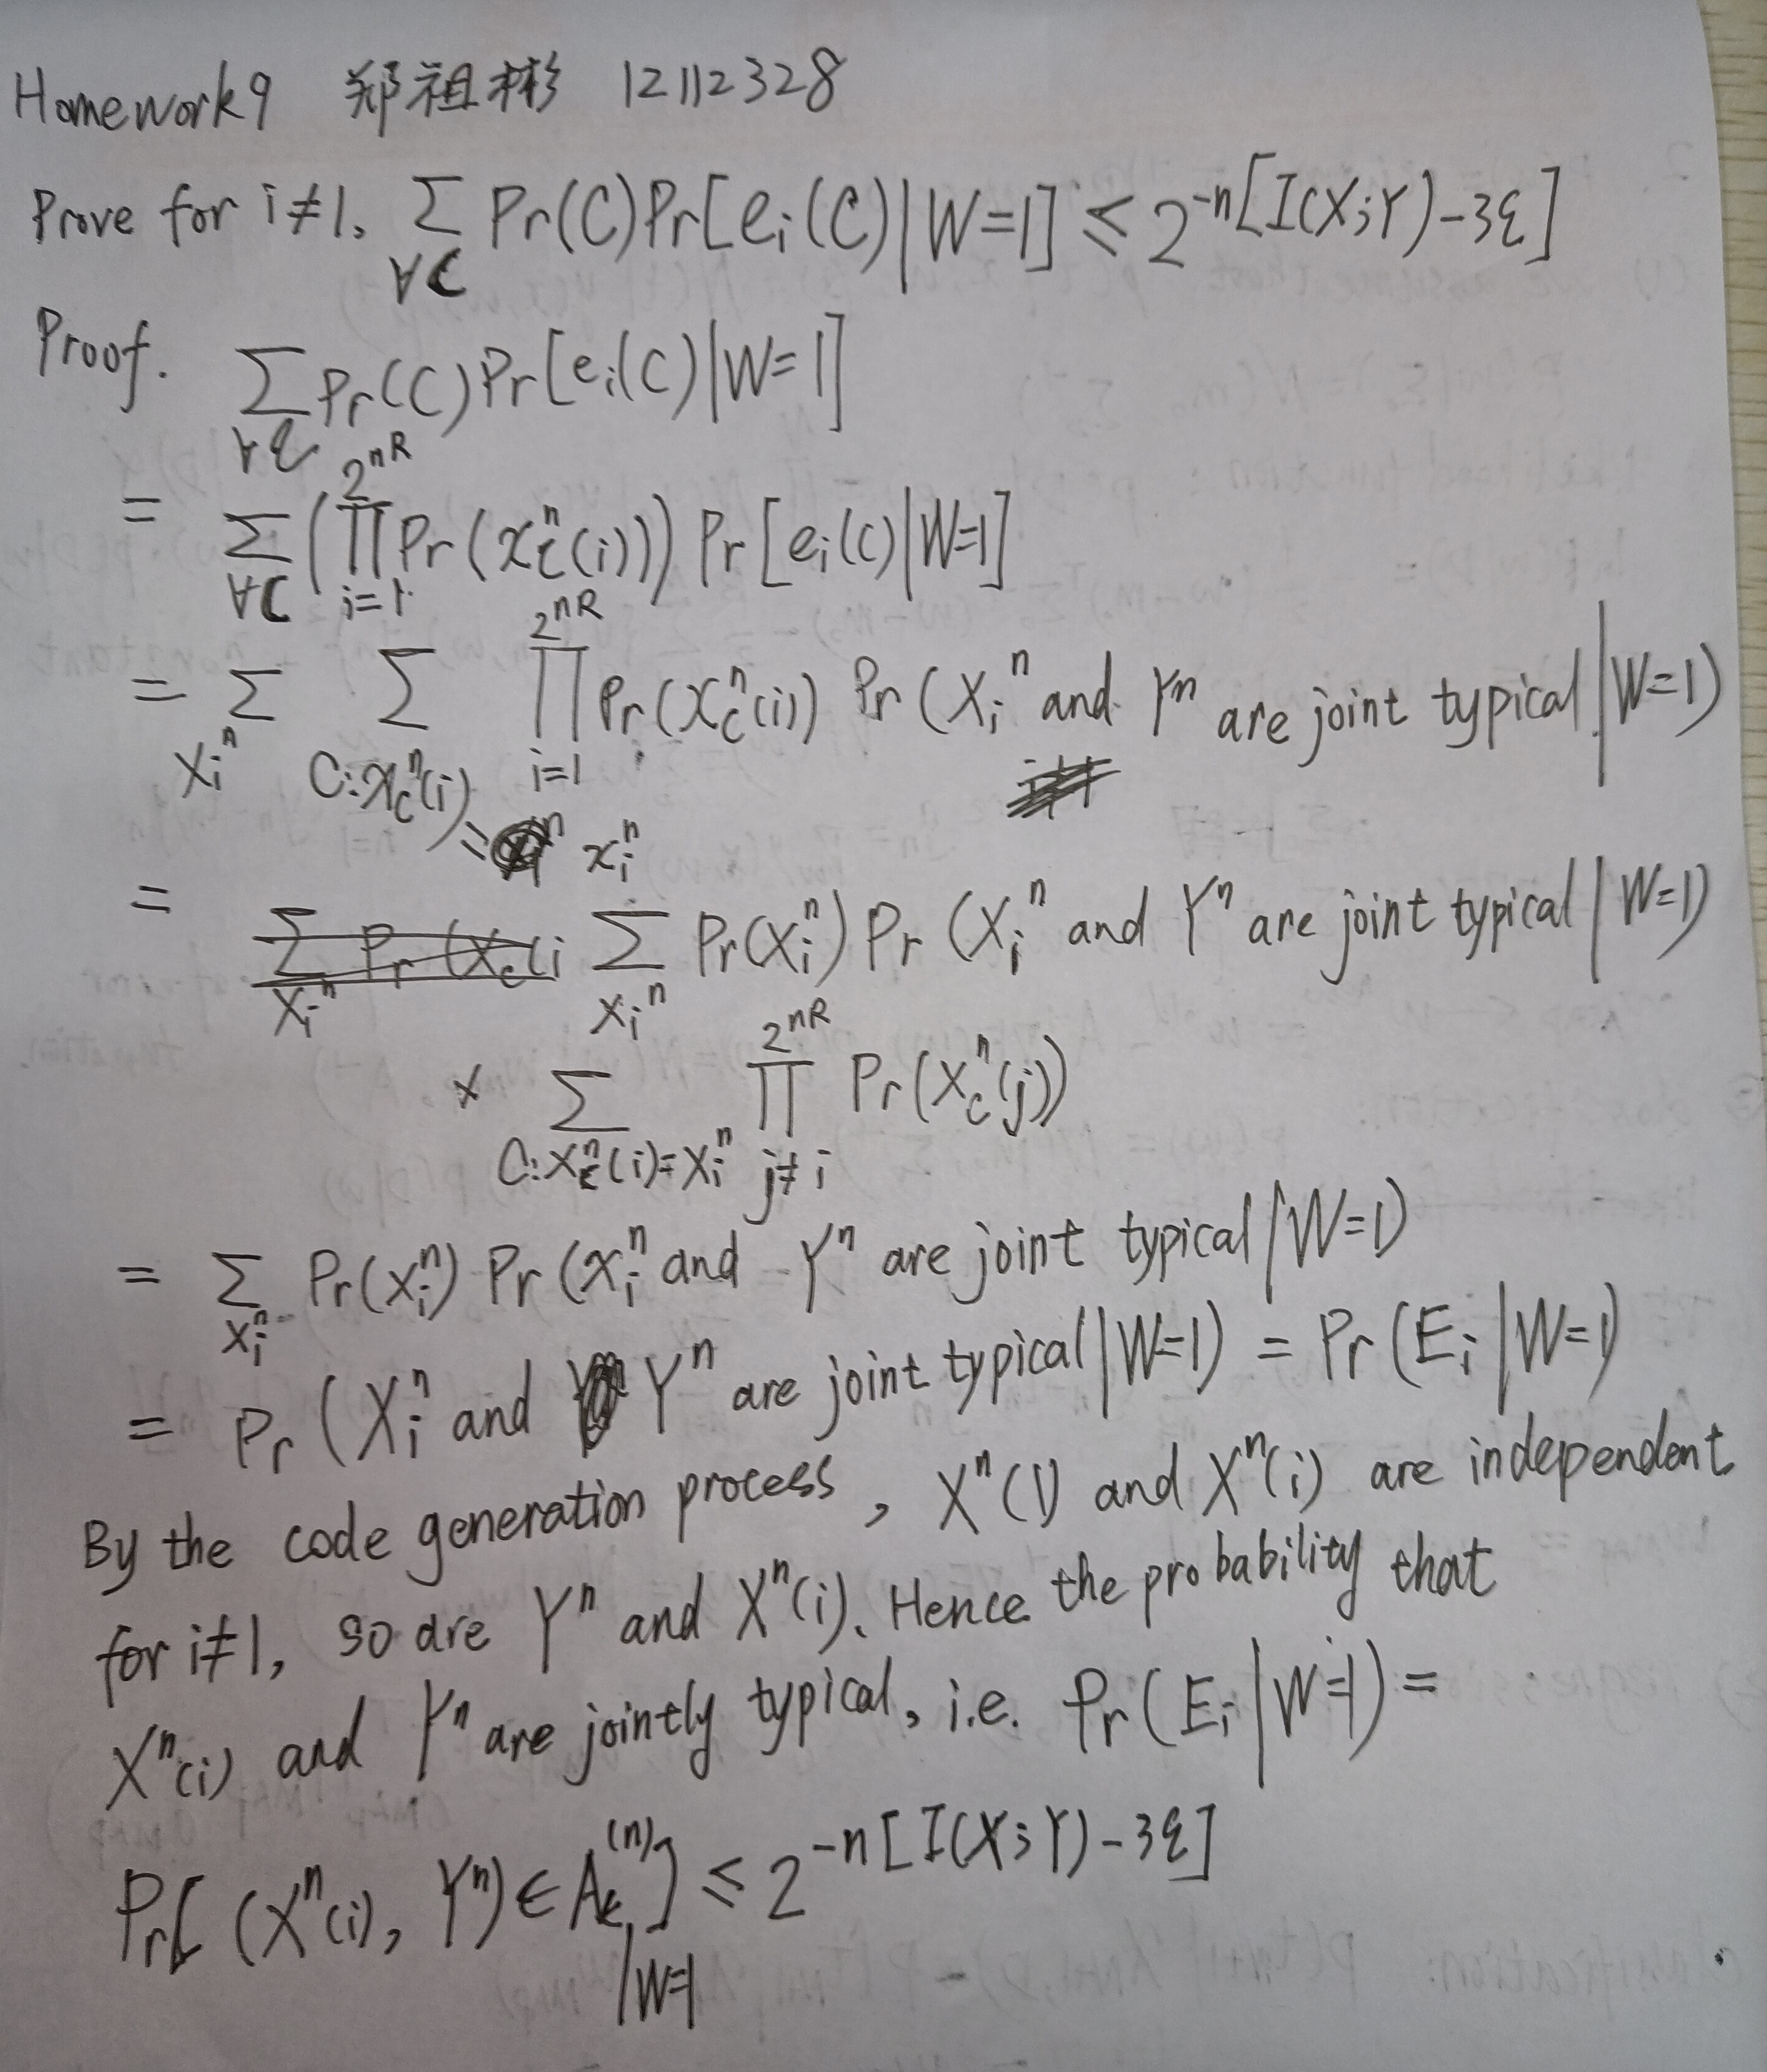 Homework9 郑祖彬 12112328
Prove for i≠1, ∑_{∀C} Pr(C)Pr[e_i(C)|W=1] ≤ 2^{-n[I(X;Y)-3ε]}
Proof. ∑_{∀C} Pr(C)Pr[e_i(C)|W=1]
= ∑_{∀C} (∏_{i=1}^{2^{nR}} Pr(x_c^n(i))) Pr[e_i(C)|W=1]
= ∑_{X_i^n} ∑_{C:x_c^n(i)=x_i^n} ∏_{i=1}^{2^{nR}} Pr(x_c^n(i)) Pr(X_i^n and Y^n are joint typical|W=1)
= ∑_{X_i^n} Pr(X_i^n) Pr(X_i^n and Y^n are joint typical|W=1)
× ∑_{C:X_c^n(i)=X_i^n} ∏_{j≠i}^{2^{nR}} Pr(X_c^n(j))
= ∑_{X_i^n} Pr(x_i^n) Pr(x_i^n and Y^n are joint typical|W=1)
= Pr(X_i^n and Y^n are joint typical|W=1) = Pr(E_i|W=1)
By the code generation process, X^n(1) and X^n(i) are independent
for i≠1, so are Y^n and X^n(i). Hence the probability that
X^n(i) and Y^n are jointly typical, i.e. Pr(E_i|W=1) =
Pr[(X^n(i), Y^n) ∈ A_ε^{(n)}] ≤ 2^{-n[I(X;Y)-3ε]}
|W=1